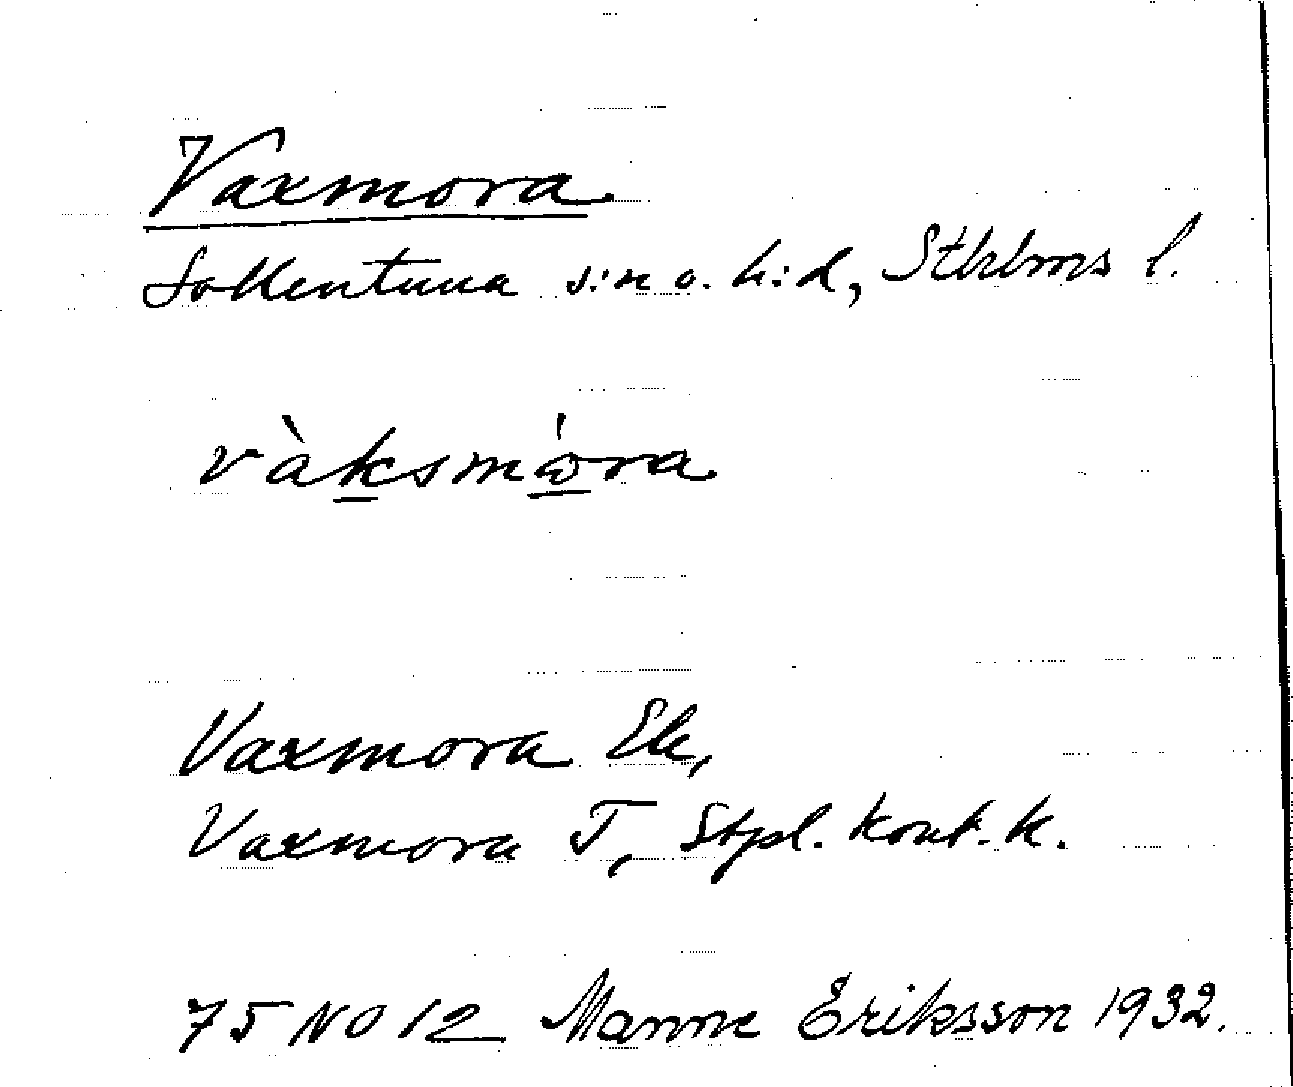 Vaxmora
Sollentuna s:n o. h:d, Sthlms l.
vàksmὼra
Vaxmora Ek,
Vaxmora T, Stpl. kont. k.
75 NO 12 Manne Eriksson 1932.